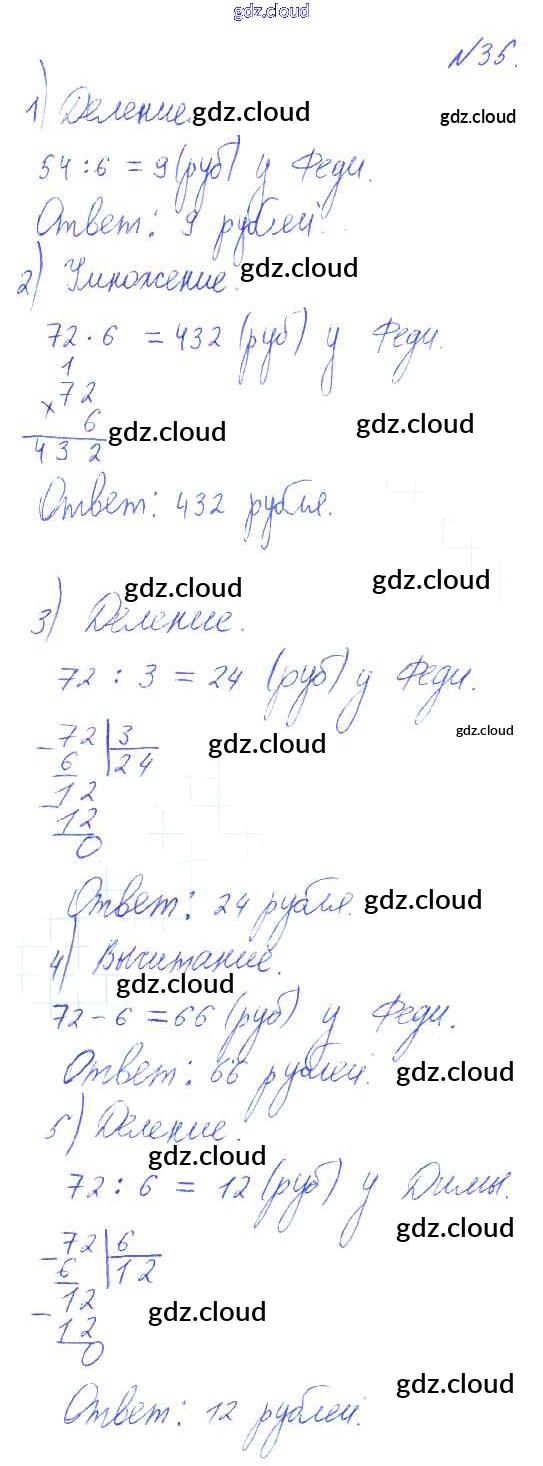 gdz.cloud
№35.
1) Деление. gdz.cloud gdz.cloud
54 : 6 = 9 (руб) у Феди.
Ответ: 9 рублей.
2) Умножение. gdz.cloud
72 · 6 = 432 (руб) у Феди.
1
× 72
6 gdz.cloud gdz.cloud
432
Ответ: 432 рубля.
gdz.cloud gdz.cloud
3) Деление.
72 : 3 = 24 (руб) у Феди.
− 72 | 3 gdz.cloud gdz.cloud
6 24
− 12
12
0
Ответ: 24 рубля. gdz.cloud
4) Вычитание.
gdz.cloud
72 − 6 = 66 (руб) у Феди.
Ответ: 66 рублей. gdz.cloud
5) Деление.
gdz.cloud
72 : 6 = 12 (руб) у Димы.
gdz.cloud
− 72 | 6
6 12
− 12 gdz.cloud
12
0
gdz.cloud
Ответ: 12 рублей.